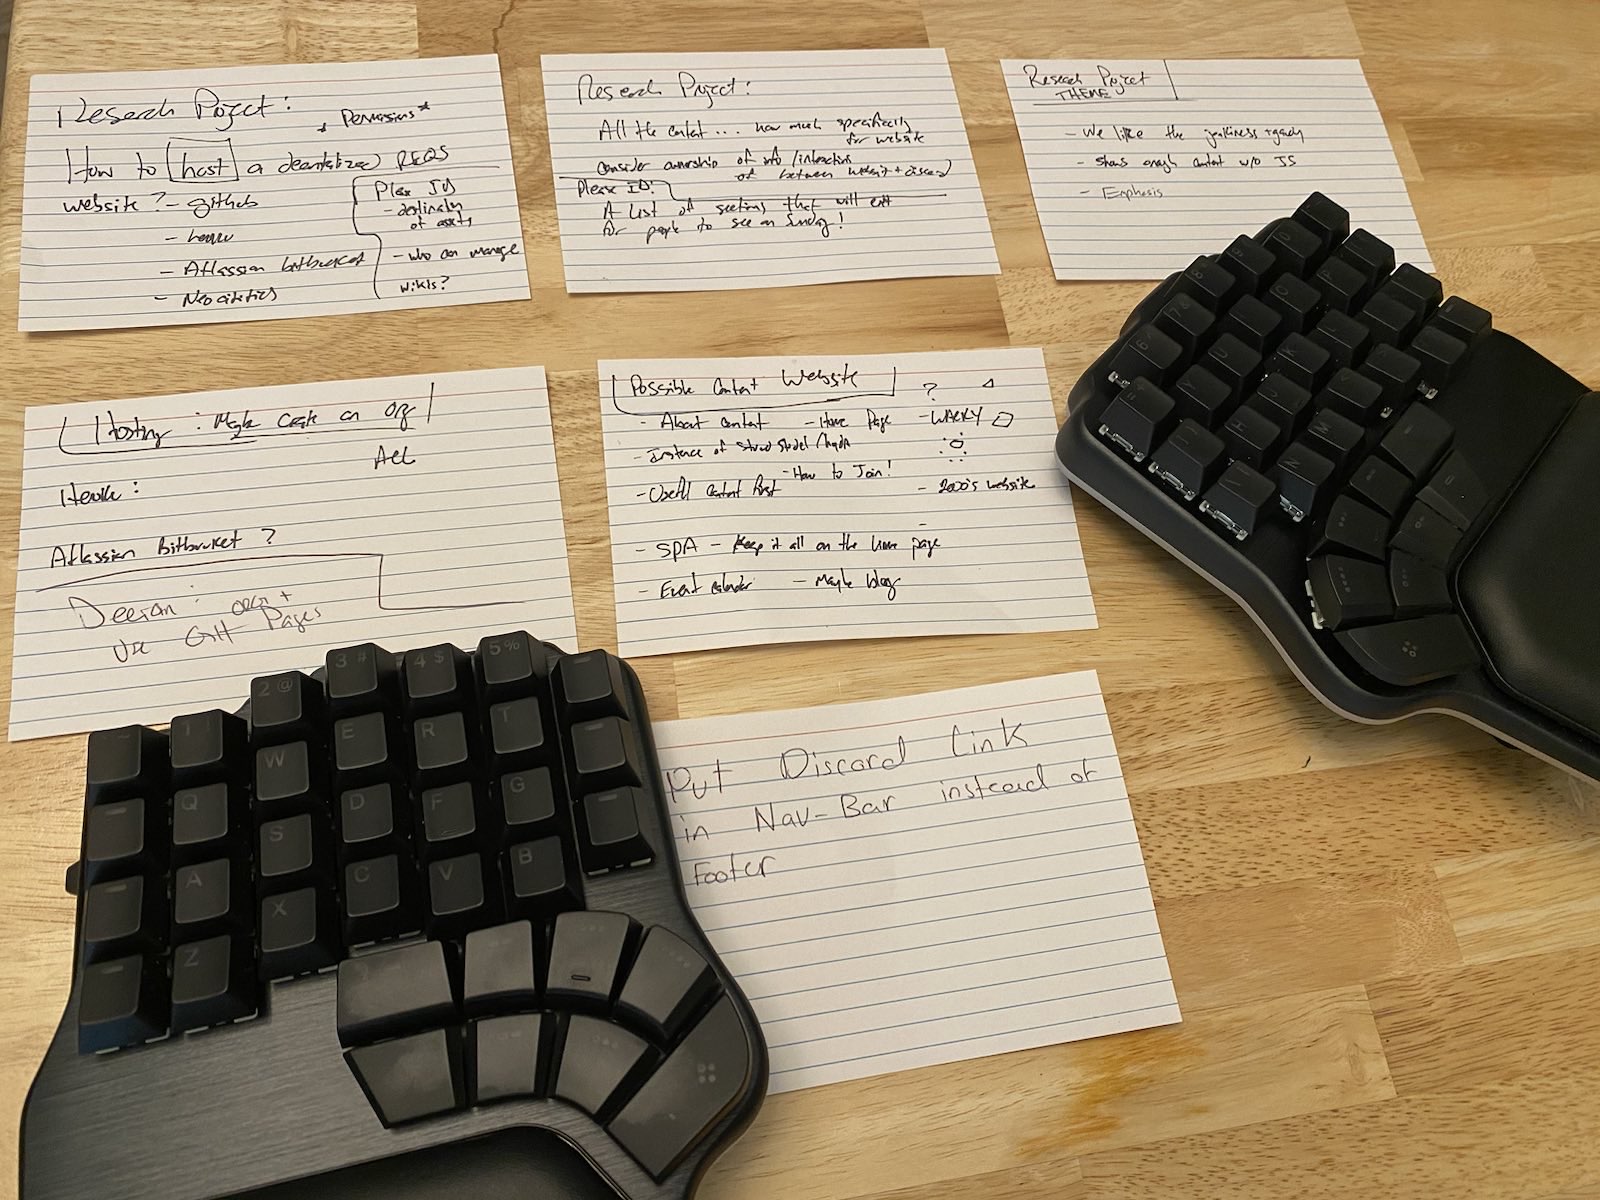 Research Project:
* Permissions*
How to host a decentralized REQS
website? - github
- heroku
- Atlassian bitbucket
- Neocities
Please ID
- destination
of assets
- who can manage
wikis?
Research Project:
All the content... how much specifically
for website
Consider ownership of info / interactions
of between website + discord
Please ID:
A list of sections that will exist
for people to see on Sunday!
Research Project
THEME
- We like the jankiness
- Shows enough content w/o JS
- Emphasis
Hosting: Maybe create an org
Acc
Heroku:
Atlassian Bitbucket?
Decision: org +
Use GH Pages
Possible Content Website
- About content - Home Page
- Instance of
- Useful Content First - How to Join!
- SPA - Keep it all on the home page
- Event calendar - Maybe blog
?
- WACKY
- 2000's website
Put Discord Link
in Nav-Bar instead of
Footer
3 #
4 $
5 %
2 @
1 !
W
E
R
T
Q
S
D
F
G
A
X
C
V
B
Z
0
9
8
7
6
P
O
L
U
K
Y
J
H
M
N